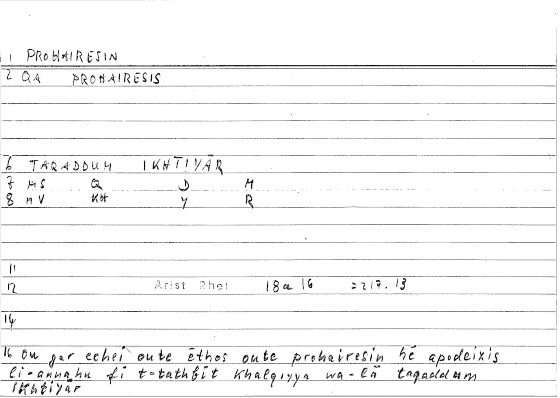 1 PROHAIRESIN
2 QA PROHAIRESIS
6 TAQADDUM IKHTIYĀR
7 MS Q D M
8 nV KH Y R
11
12 Arist Rhet 18a 16 =217.13
14
16 Ou gar echei oute ēthos oute prohairesin hē apodeixis
li-annahu fī t-tathbīt khalqiyya wa-lā taqaddum
ikhtiyār